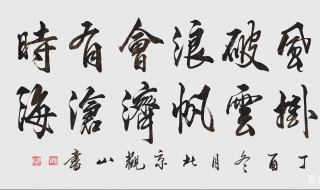 風破浪會有時
掛雲帆濟滄海
丁酉冬月北京觀山書